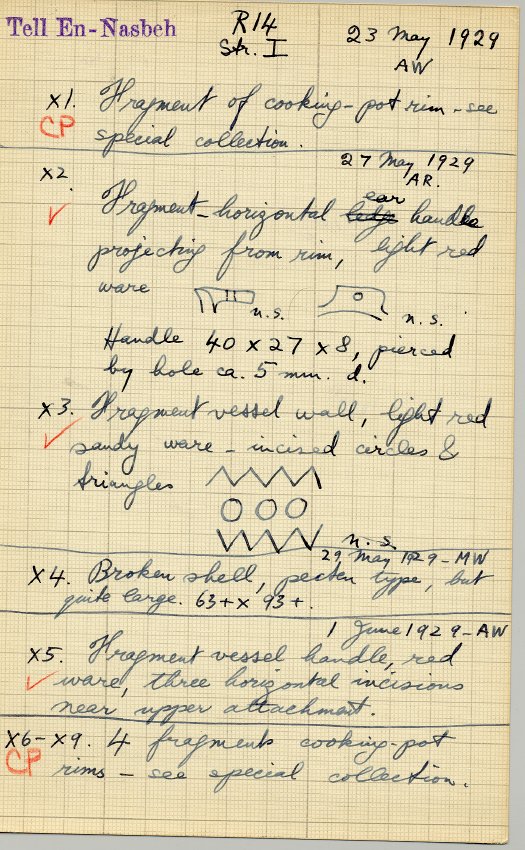 Tell En-Nasbeh
R14
Str. I
23 May 1929
AW
x1. Fragment of cooking-pot rim - see
CP special collection.
27 May 1929
AR.
x2. Fragment - horizontal ledge ear handle
projecting from rim, light red
ware n.s. n.s.
Handle 40 x 27 x 8, pierced
by hole ca. 5 mm. d.
x3. Fragment vessel wall, light red
sandy ware - incised circles &
triangles
n.s.
29 May 1929 - MW
X4. Broken shell, pecten type, but
quite large. 63+ x 93+.
1 June 1929 - AW
x5. Fragment vessel handle, red
ware, three horizontal incisions
near upper attachment.
X6-X9. 4 fragments cooking-pot
CP rims - see special collection.